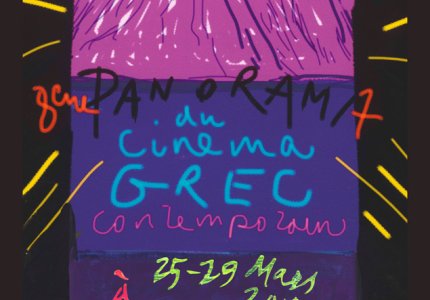 8eme PANORAMA
du
Cinema
GREC
contemporain
25-29 Mars
À